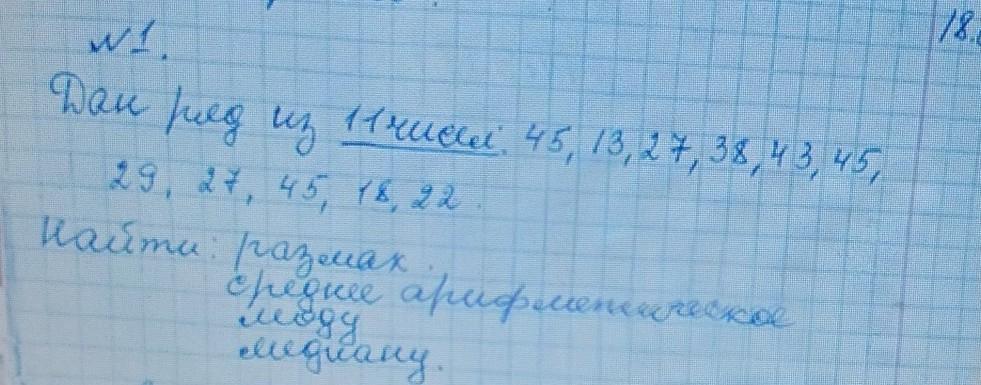 18.
N1.
Дан ряд из 11 чисел. 45, 13, 27, 38, 43, 45,
29, 27, 45, 18, 22.
Найти: размах.
среднее арифметическое
моду
медиану.